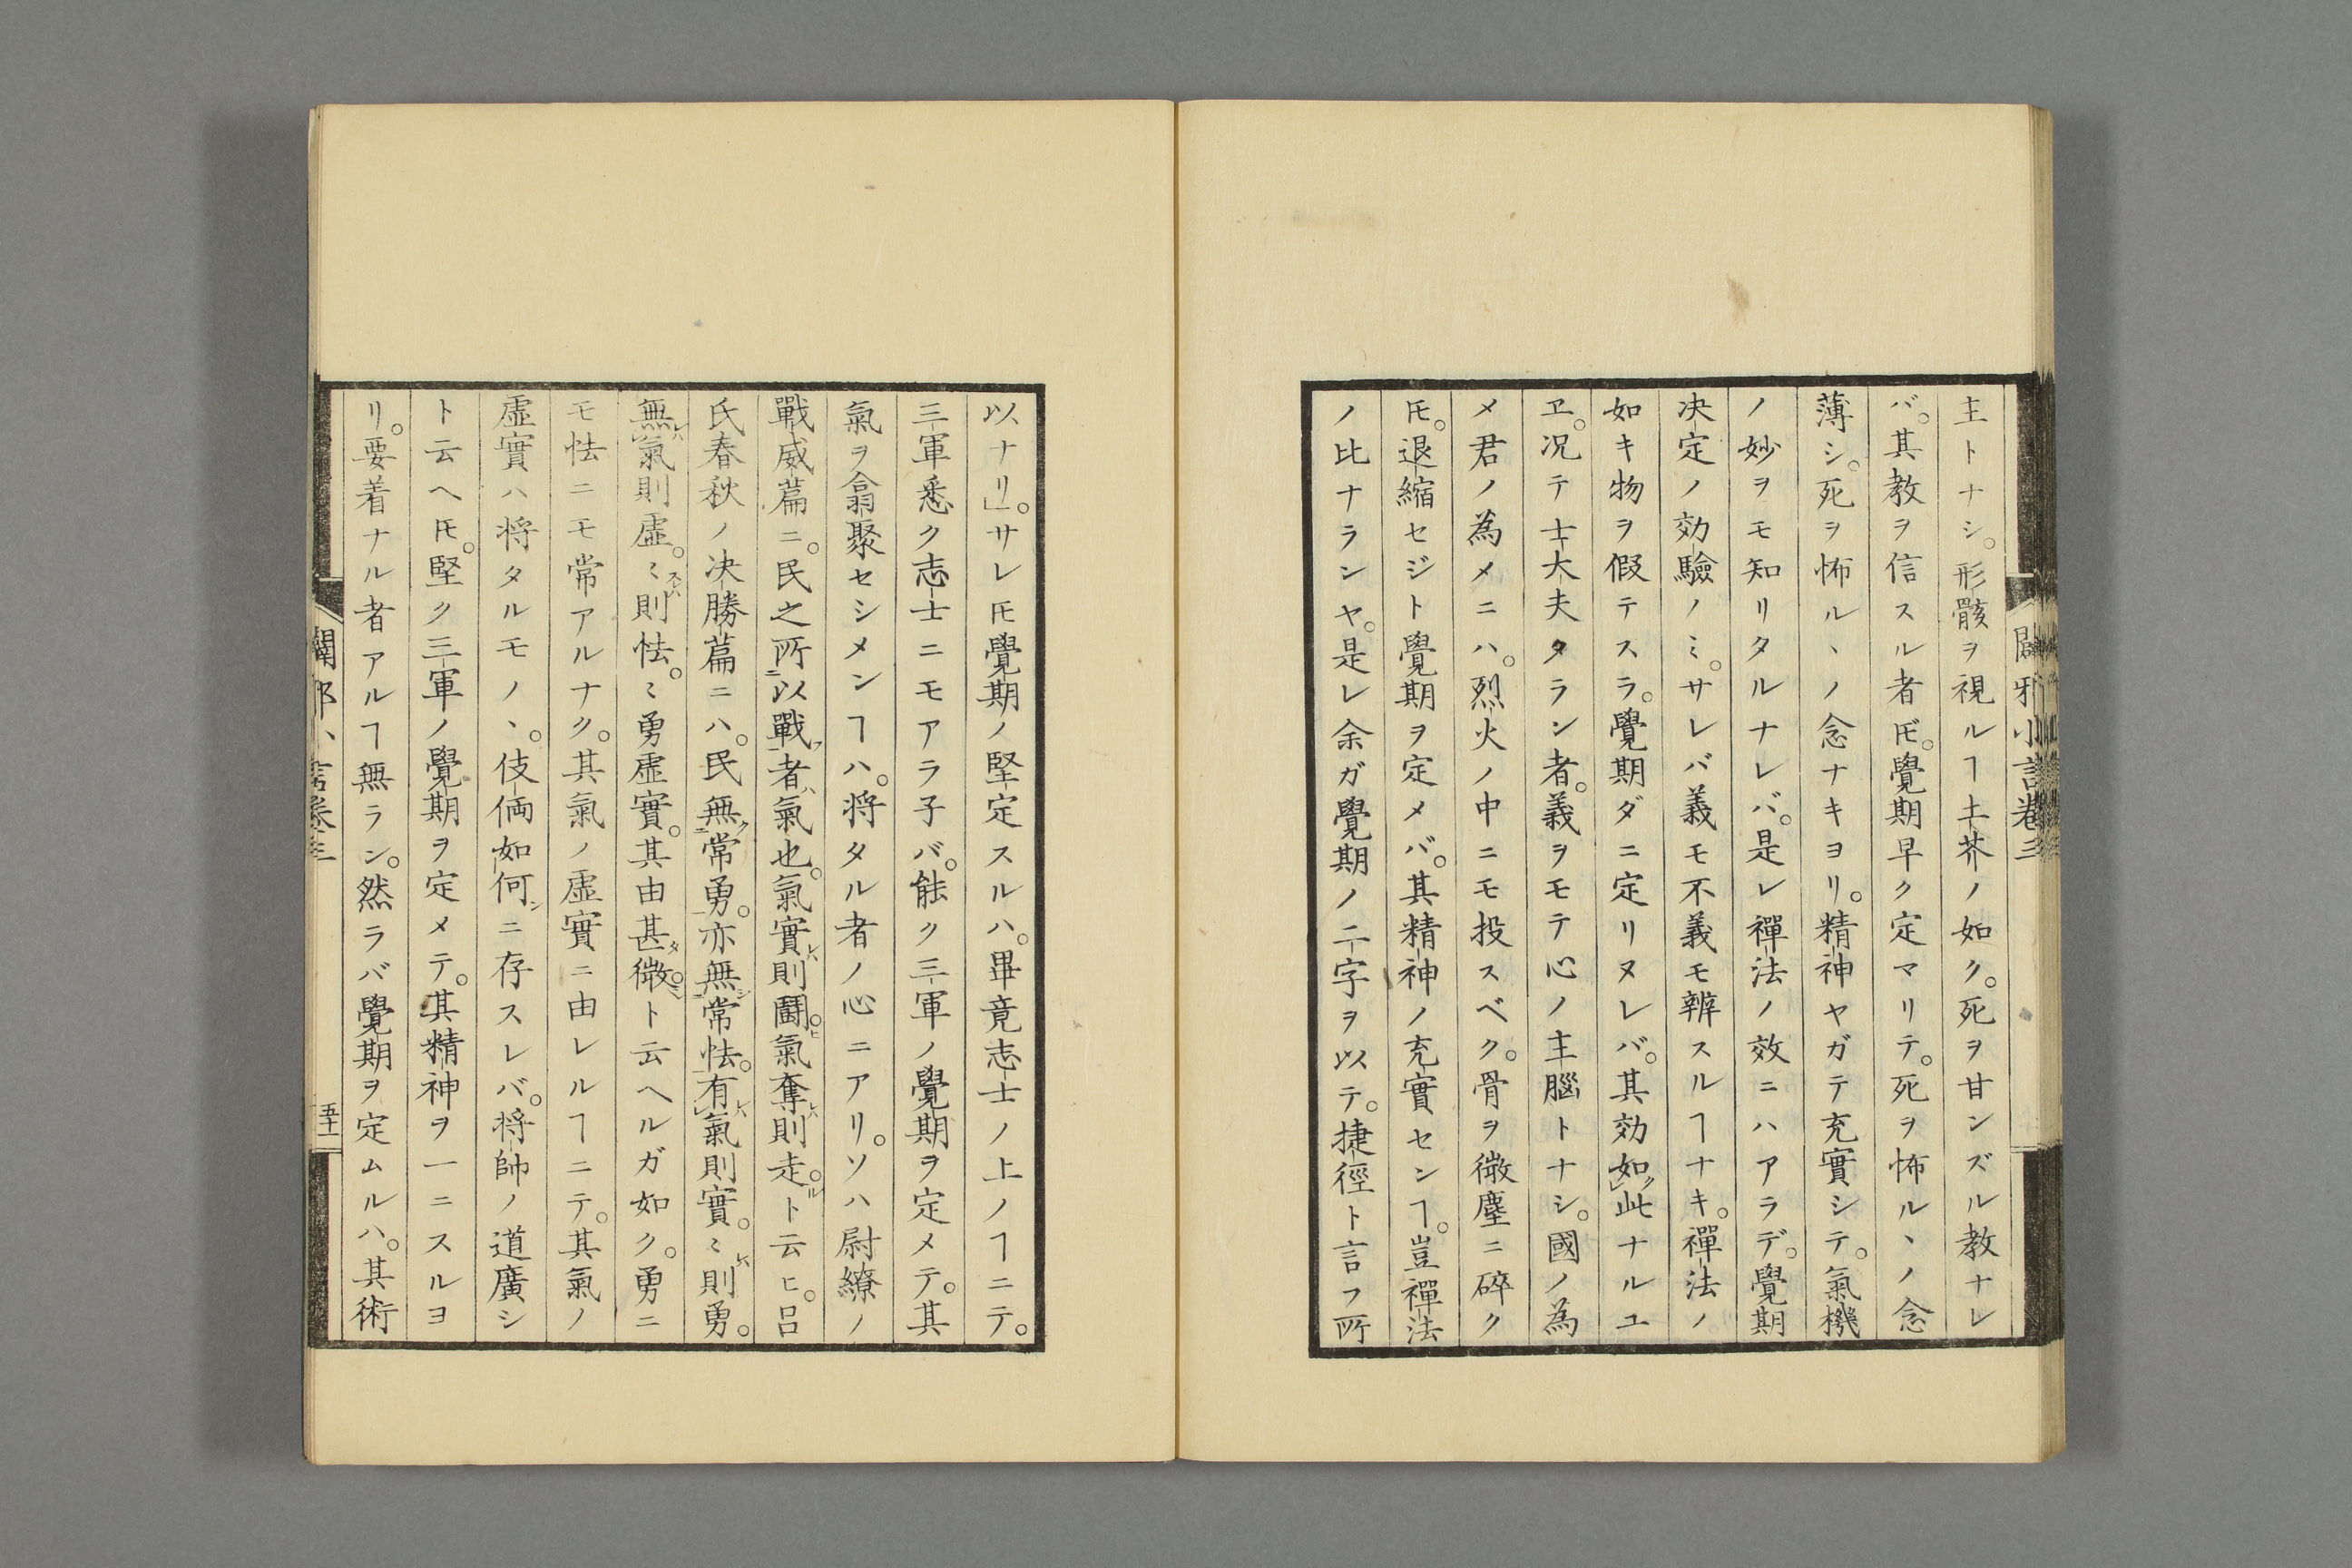 闢邪小言卷三
主トナシ。形骸ヲ視ルヿ土芥ノ如ク。死ヲ甘ンズル教ナレ
バ。其教ヲ信スル者𪜈。覺期早ク定マリテ。死ヲ怖ル丶ノ念
薄シ。死ヲ怖ル丶ノ念ナキヨリ。精神ヤガテ充實シテ。氣機
ノ妙ヲモ知リタルナレバ。是レ禪法ノ效ニハアラデ。覺期
决定ノ効驗ノミ。サレバ義モ不義モ辨スルヿナキ。禪法ノ
如キ物ヲ假テスラ。覺期ダニ定リヌレバ。其効如此ナルユ
ヱ。况テ士大夫タラン者。義ヲモテ心ノ主腦トナシ。國ノ為
メ君ノ為メニハ。烈火ノ中ニモ投スベク。骨ヲ微塵ニ碎ク
𪜈。退縮セジト覺期ヲ定メバ。其精神ノ充實センヿ。豈禪法
ノ比ナランヤ。是レ余ガ覺期ノ二字ヲ以テ。捷徑ト言フ所
以ナリ」。サレ𪜈覺期ノ堅定スルハ。畢竟志士ノ上ノヿニテ。
三軍悉ク志士ニモアラ子バ。能ク三軍ノ覺期ヲ定メテ。其
氣ヲ翕聚セシメンヿハ。将タル者ノ心ニアリ。ソハ尉繚ノ
戰威篇ニ。民之所ニ以戰フ一者ハ氣也。氣實レハ則鬪ヒ。氣奪レハ則走ルト云ヒ。呂
氏春秋ノ决勝篇ニハ。民無ク二常勇一。亦無シ二常怯一。有レハレ氣則實。〻レハ則勇。
無レハレ氣則虛。〻スレハ則怯。〻勇虛實。其由甚タ微ト云ヘルガ如ク。勇ニ
モ怯ニモ常アルナク。其氣ノ虛實ニ由レルヿニテ。其氣ノ
虛實ハ将タルモノ丶。伎倆如何ニ存スレバ。将帥ノ道廣シ
ト云ヘ𪜈。堅ク三軍ノ覺期ヲ定メテ。其精神ヲ一ニスルヨ
リ。要着ナル者アルヿ無ラン。然ラバ覺期ヲ定ムルハ。其術
闢邪小言卷三
五十一